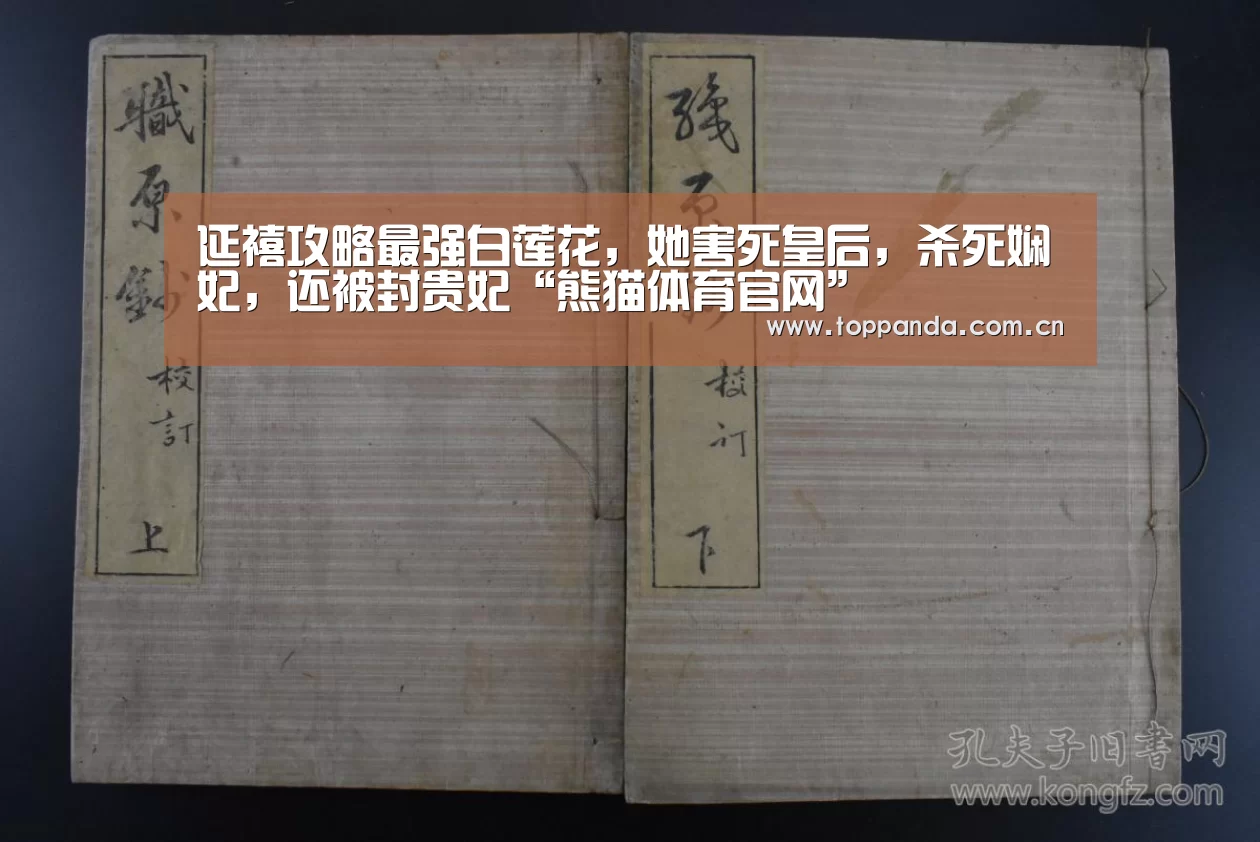 職原鈔
校訂
上
校訂
下
延禧攻略最强白莲花，她害死皇后，杀死娴
妃，还被封贵妃“熊猫体育官网”
www.toppanda.com.cn
孔夫子旧書网
www.kongfz.com